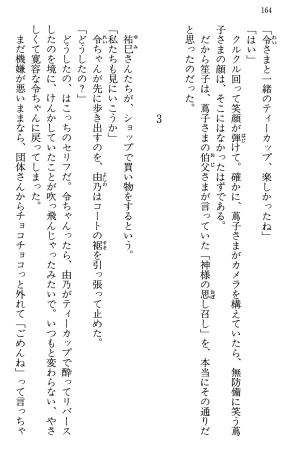 164
「令さまと一緒のティーカップ、楽しかったね」
「はい」
クルクル回って笑顔が弾けて。確かに、蔦子さまがカメラを構えていたら、無防備に笑う蔦
子さまの顔は、そこにはなかったはずである。
だから笙子は、蔦子さまの伯父さまが言っていた「神様の思し召し」を、本当にその通りだ
と思ったのだった。
3
祐巳さんたちが、ショップで買い物をするという。
「私たちも見にいこうか」
令ちゃんが先に歩き出すのを、由乃はコートの裾を引っ張って止めた。
「どうしたの？」
どうしたの、はこっちのセリフだ。令ちゃんったら、由乃がティーカップで酔ってリバース
したのを境に、けんかしていたことが吹っ飛んじゃったみたいで。いつもと変わらない、やさ
しくて寛容な令ちゃんに戻ってしまった。
まだ機嫌が悪いままなら、団体さんからチョコチョコっと外れて「ごめんね」って言っちゃ